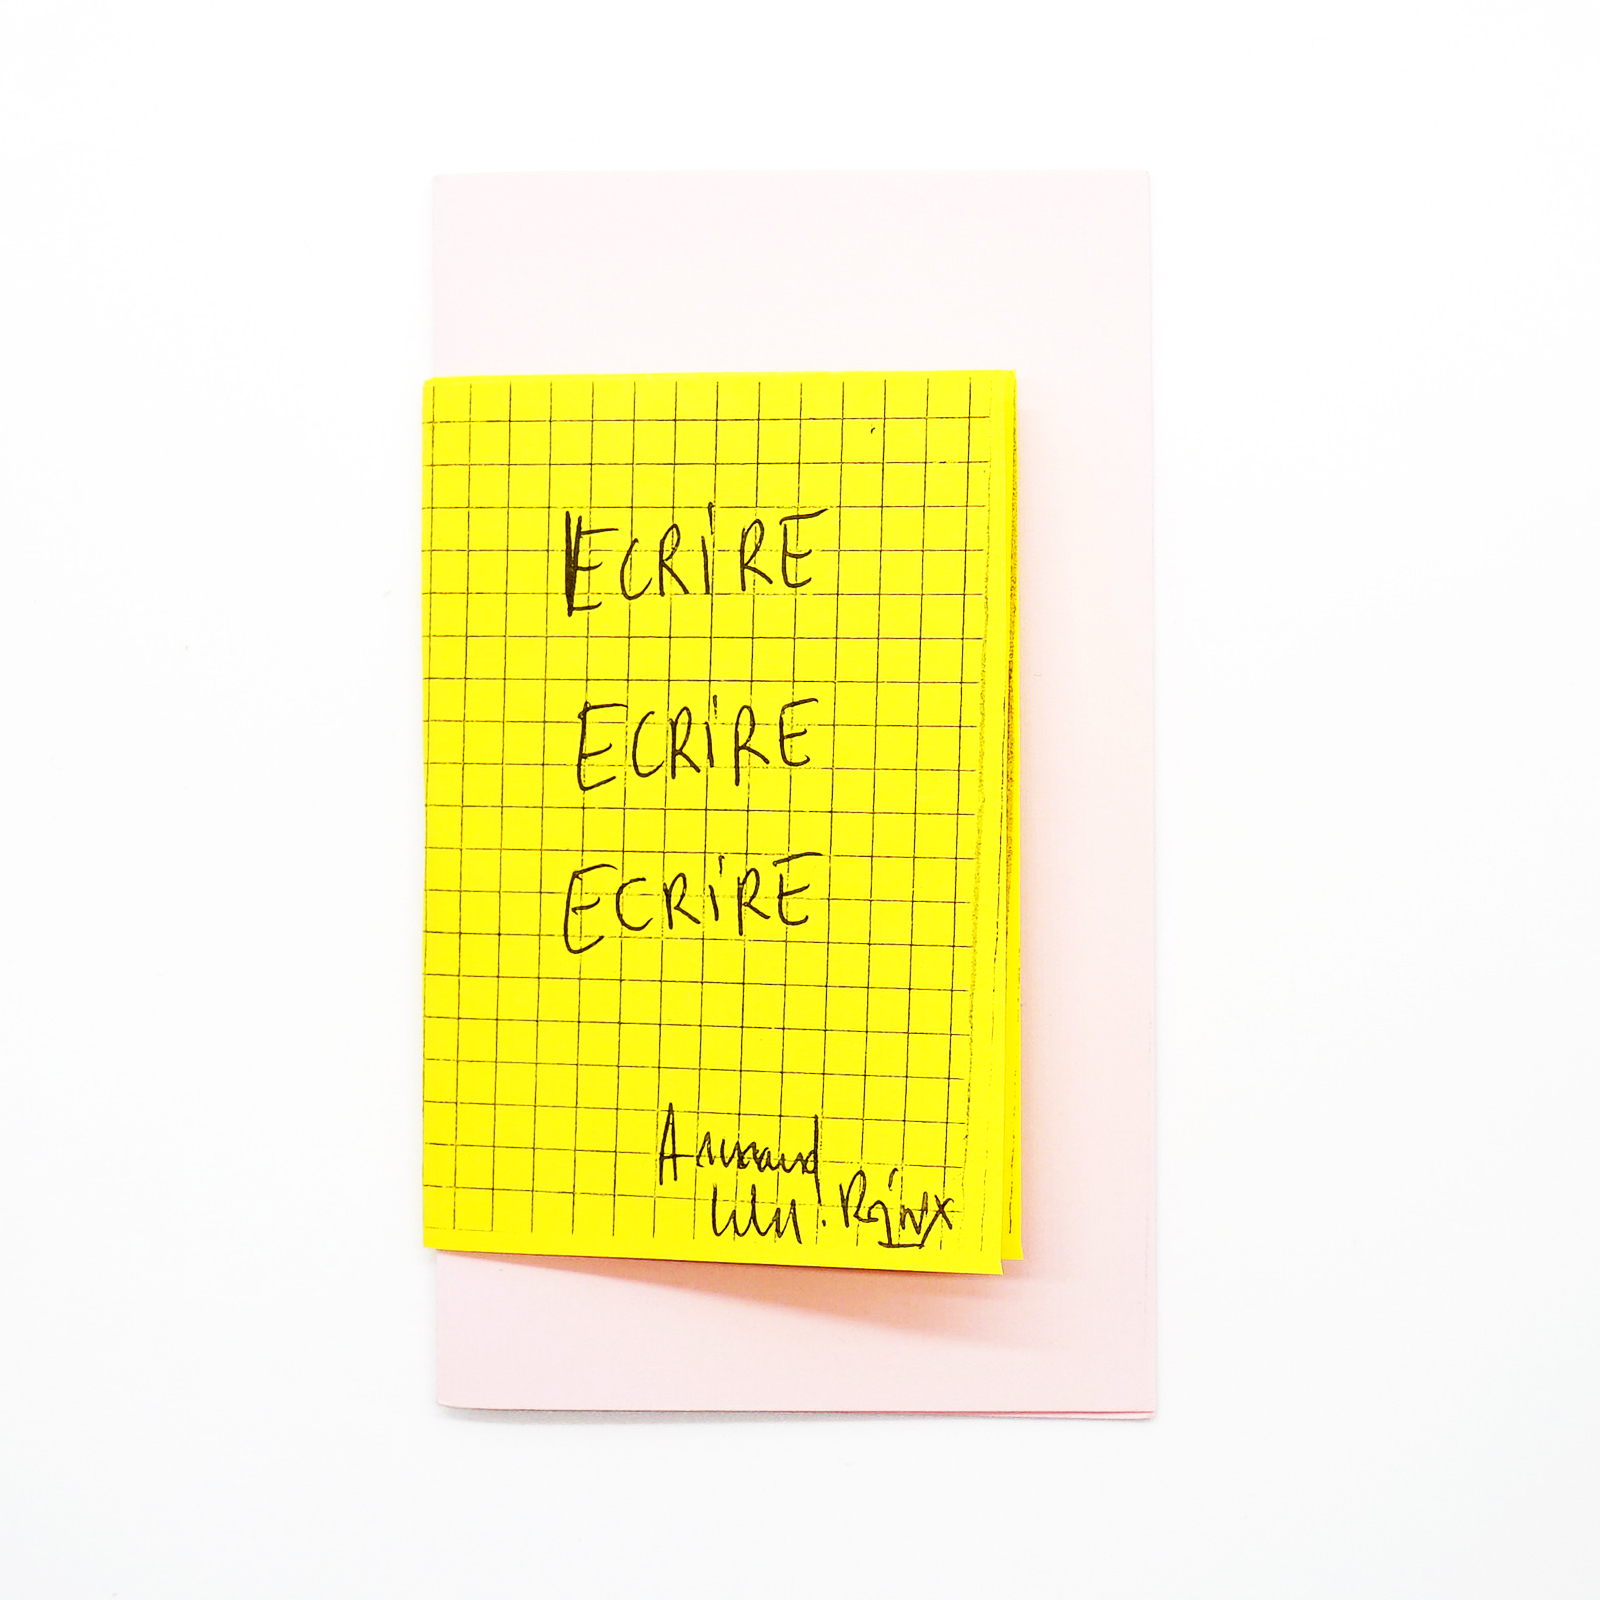 ECRIRE
ECRIRE
ECRIRE
Armand